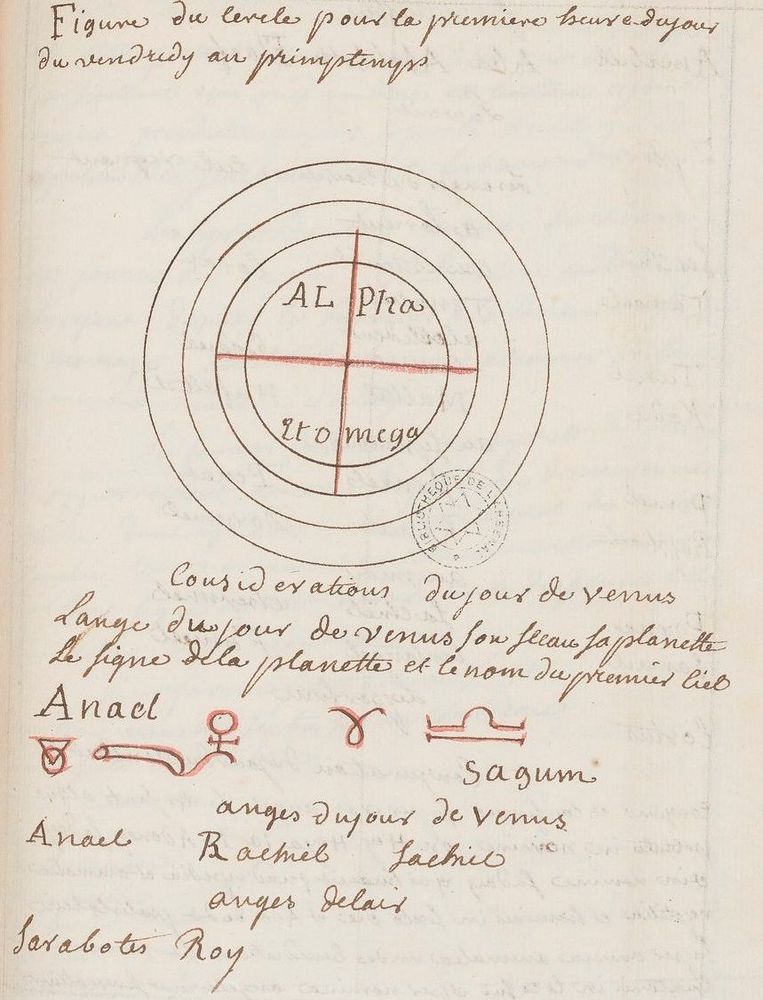 Figure du cercle pour la premiere heure dujour
du vendredy au primptemps
AL Pha
Et o mega
BIBLIOTHEQUE DE L'ARSENAL
Considerations dujour de venus
Lange du jour de venus son sceau sa planette
Le signe dela planette et le nom du premier ciel
Anael
Sagum
anges dujour de venus
Anael Rachiel Sachiel
anges delair
Sarabotes Roy